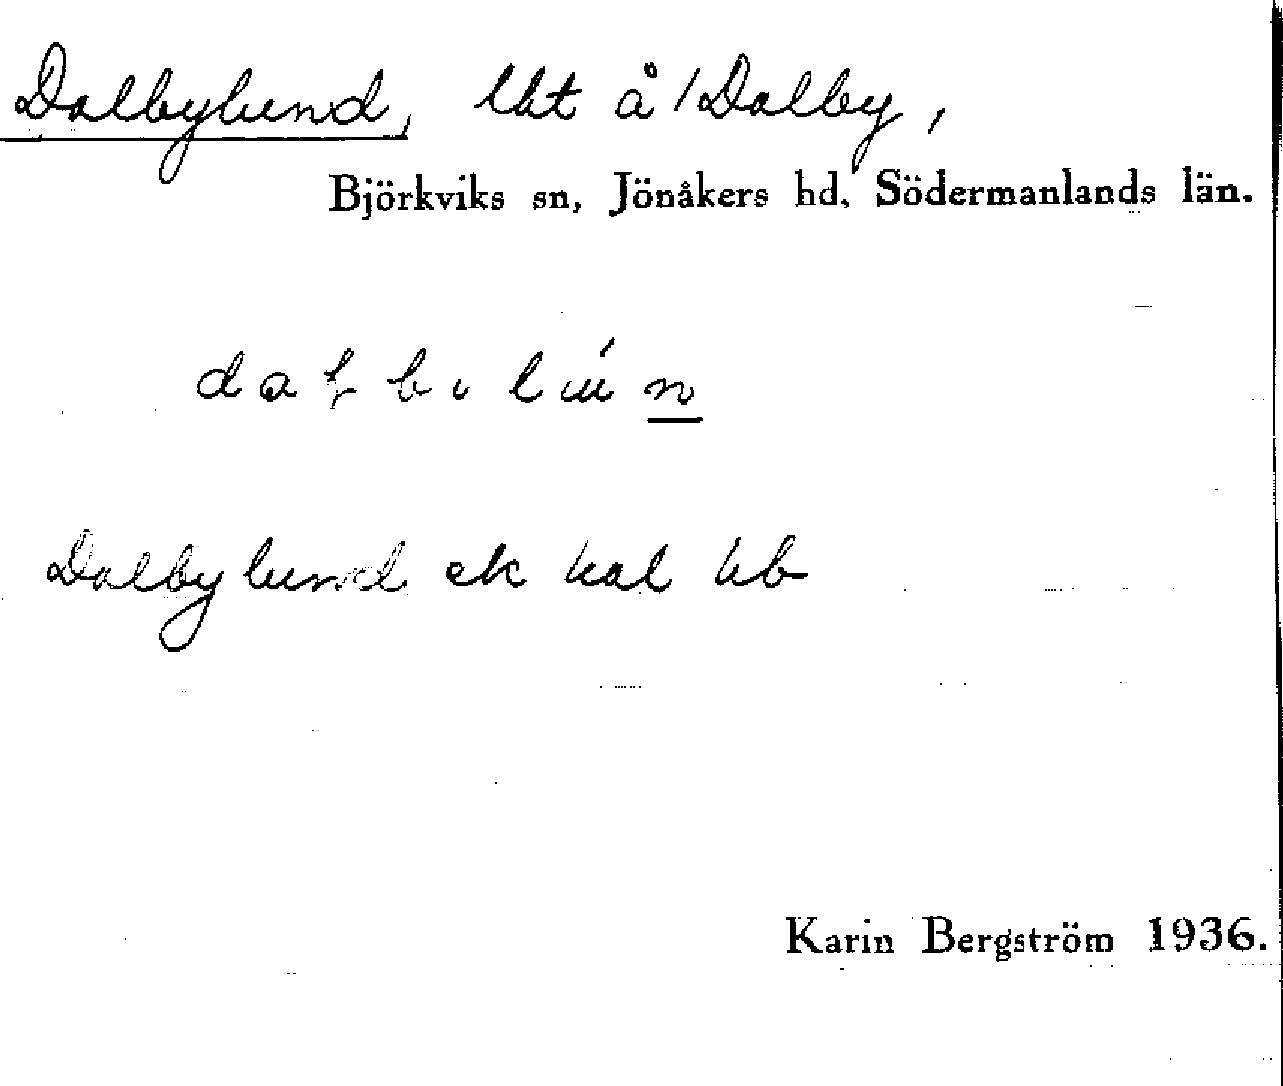 Dalbylund, lht å /Dalby,
Björkviks sn, Jönåkers hd, Södermanlands län.
Dalbylund ek kal hb
Karin Bergström 1936.